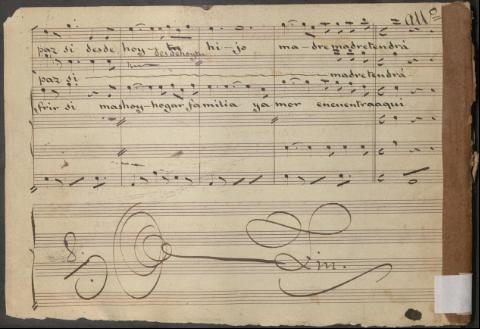 All°
paz si desde hoy-tu hi-jo ma-dre madre tendrá
desde hoy tu
paz si madre tendrá
frir si mas hoy-hogar, familia y a mor encuentra aqui
Fin.